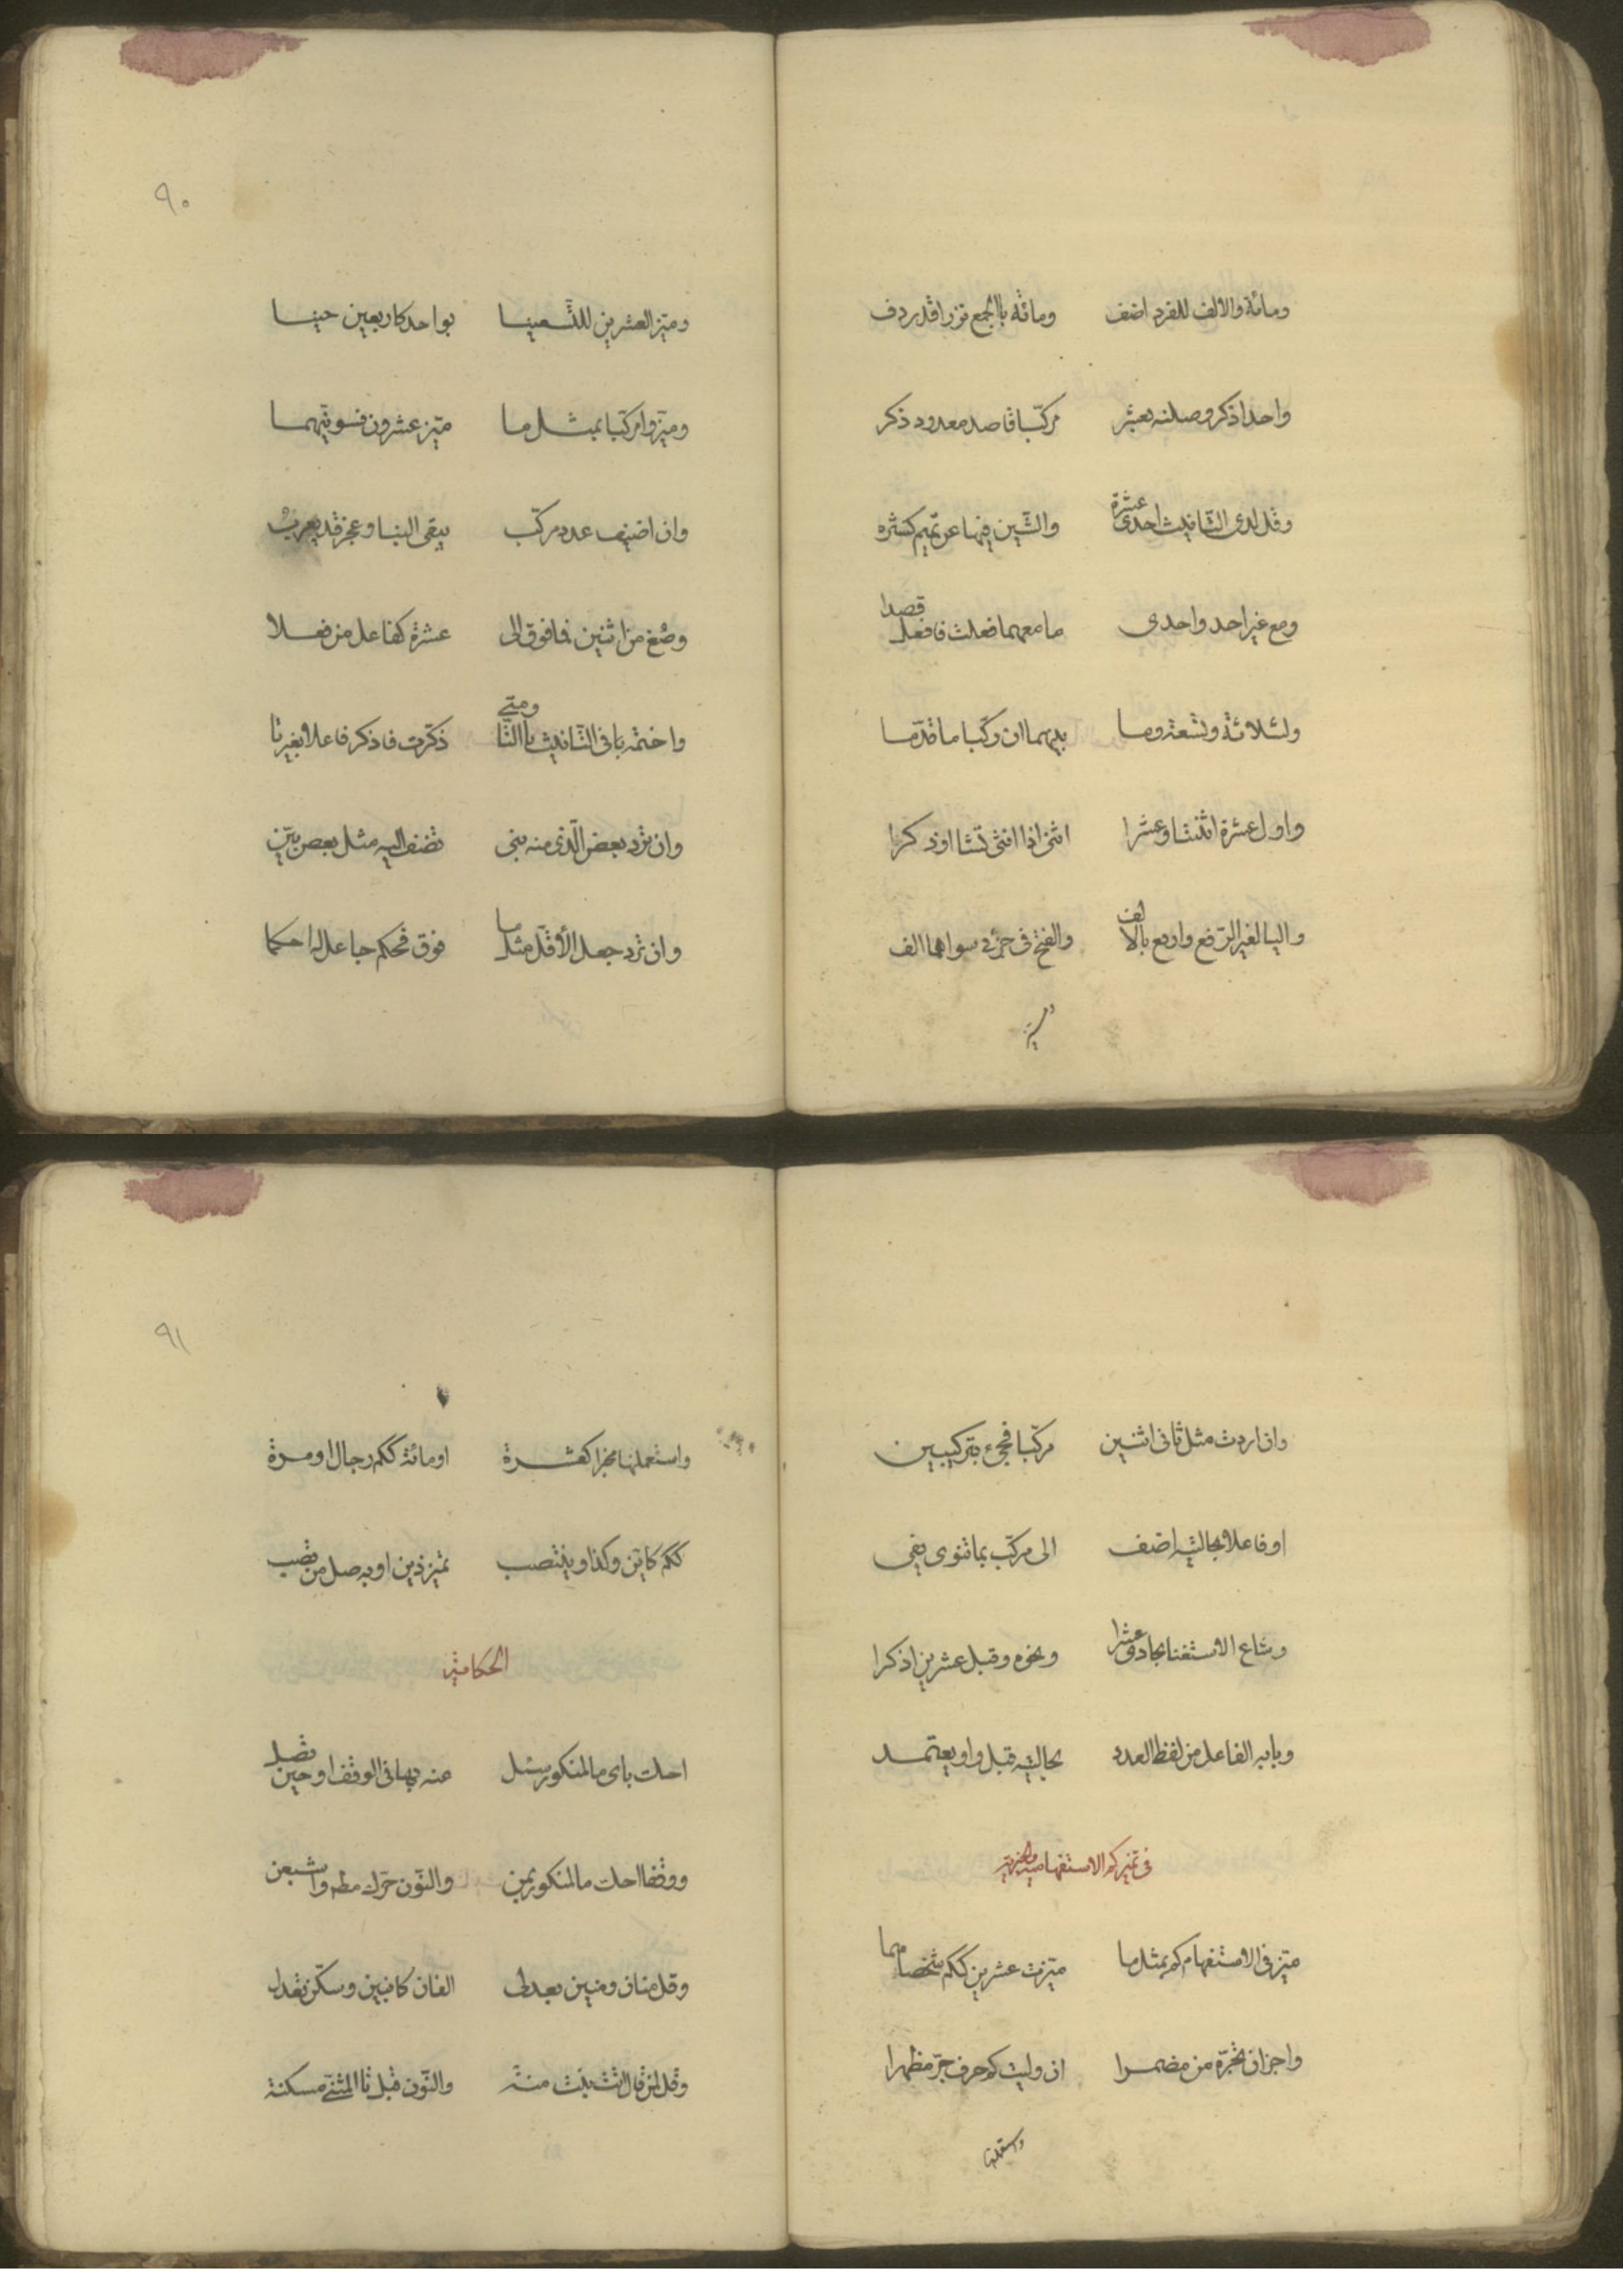 ومائة والالف للفرد اضف ومائة باالجمع نزرا قد ردف
واحدا ذكر وصلنه بعشر مركّبا قاصد معدود ذكر
وقل لدى التّانيث احدى عشرة والشّين فيها عن تميم كسره
ومع غير احد واحدى ما معهما فعلت فافعل قصدا
ولثلاثة وتسعة وما بينهما ان ركّبا ما قدّما
واول عشرة اثنتا وعشرا اثنى اذا انثى تشا او ذكرا
واليا لغير الرّفع وارفع بالالف والفتح فى جزئى سواهما الف
وميّز
٩٠
وميّز العشرين للتّسعينا بواحد كاربعين حينا
وميّزوا مركّبا بمثل ما ميّز عشرون فسوّينهما
وان اضيف عدد مركّب يبقى البنا وعجز قد يعرب
وصغ من اثنين فما فوق الى عشرة كفاعل من فعلا
واختمه يا فى التّانيث باالتّا ومتى ذكّرت فاذكر فاعلا بغير تا
وان ترد بعض الّذى منه بنى تضف اليه مثل بعض بيّن
وان ترد جعل الأقلّ مثل ما فوق فحكم جاعل له احكما
وان اردت مثل ثانى اثنين مركّبا فجئ بتركيبين
او فاعلا بحالتيه اضف الى مركّب بما تنوى يفى
وشاع الاستغنا بحادى عشرا ونحوه وقبل عشرين اذكرا
وبابه الفاعل من لفظ العدد بحالتيه قبل واو يعتمد
فى تميز كم الاستفهامية والخبرية
ميّز فى الاستفهام كم بمثل ما ميّزت عشرين ككم شخصا سما
واجز ان تجرّه من مضمرا ان وليت كم حرف جرّ مظهرا
واستعملنها
٩١
واستعملنها مخبرا كعشرة او مائة ككم رجال او مرة
ككم كاين وكذا وينتصب تميز ذين او به صل من تصب
الحكاية
احك باى ما لمنكور سئل عنه بها فى الوقف او حين تصل
ووقفا احك ما لمنكور بمن والنّون حرّك مطه واشبعن
وقل منان ومنين بعد لى الفان كابنين وسكّن تعدل
وقل لمن قال اتت بنت منة والنّون قبل تا المثنّى مسكنة